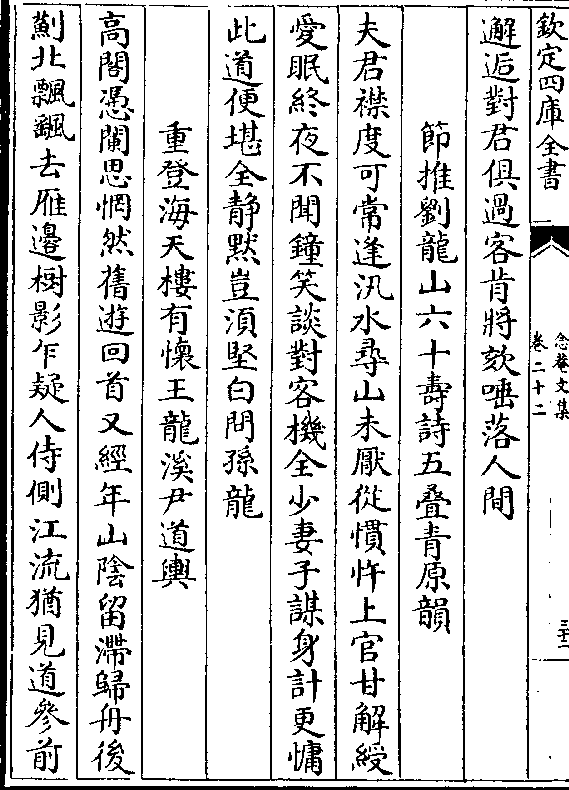 欽定四庫全書
念菴文集
卷二十二
邂逅對君俱過客肯將欬唾落人間
節推劉龍山六十壽詩五叠青原韻
夫君襟度可常逢汎水尋山未厭從慣忤上官甘解綬
愛眠終夜不聞鐘笑談對客機全少妻子謀身計更慵
此道便堪全静默豈須堅白問孫龍
重登海天樓有懷王龍溪尹道輿
高閣憑闌思惘然舊遊回首又經年山隂留滯歸舟後
薊北飄飖去雁邊樹影乍疑人侍側江流猶見道參前